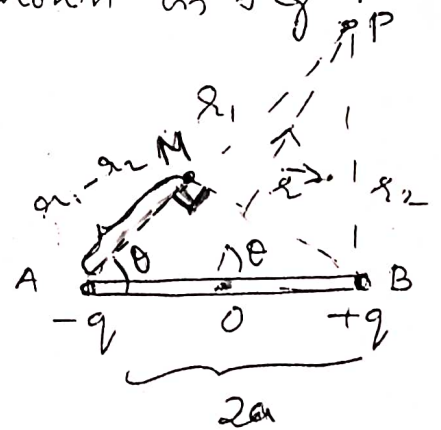 as
P
r₁
r₁-r₂ M
r⃗
r₂
θ
θ
A
B
-q
O
+q
2a